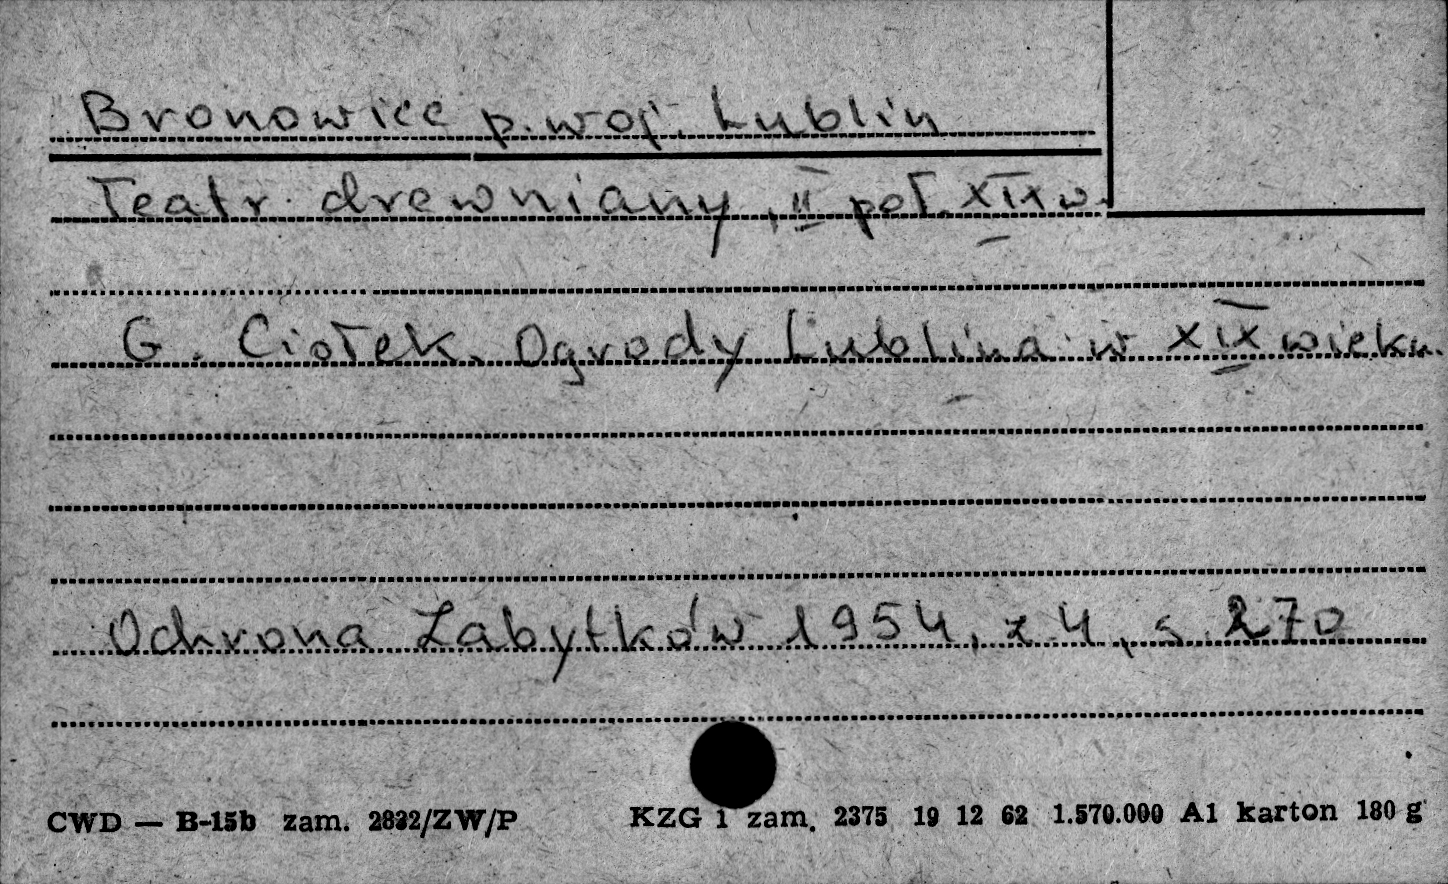 Bronowice p. woj. Lublin
Teatr drewniany, II poł. XIX w.
G. Ciołek. Ogrody Lublina w XIX wieku.
Ochrona Zabytków 1954, z 4, s. 270
CWD — B-15b zam. 2832/ZW/P KZG 1 zam. 2375 19 12 62 1.570.000 A1 karton 180 g